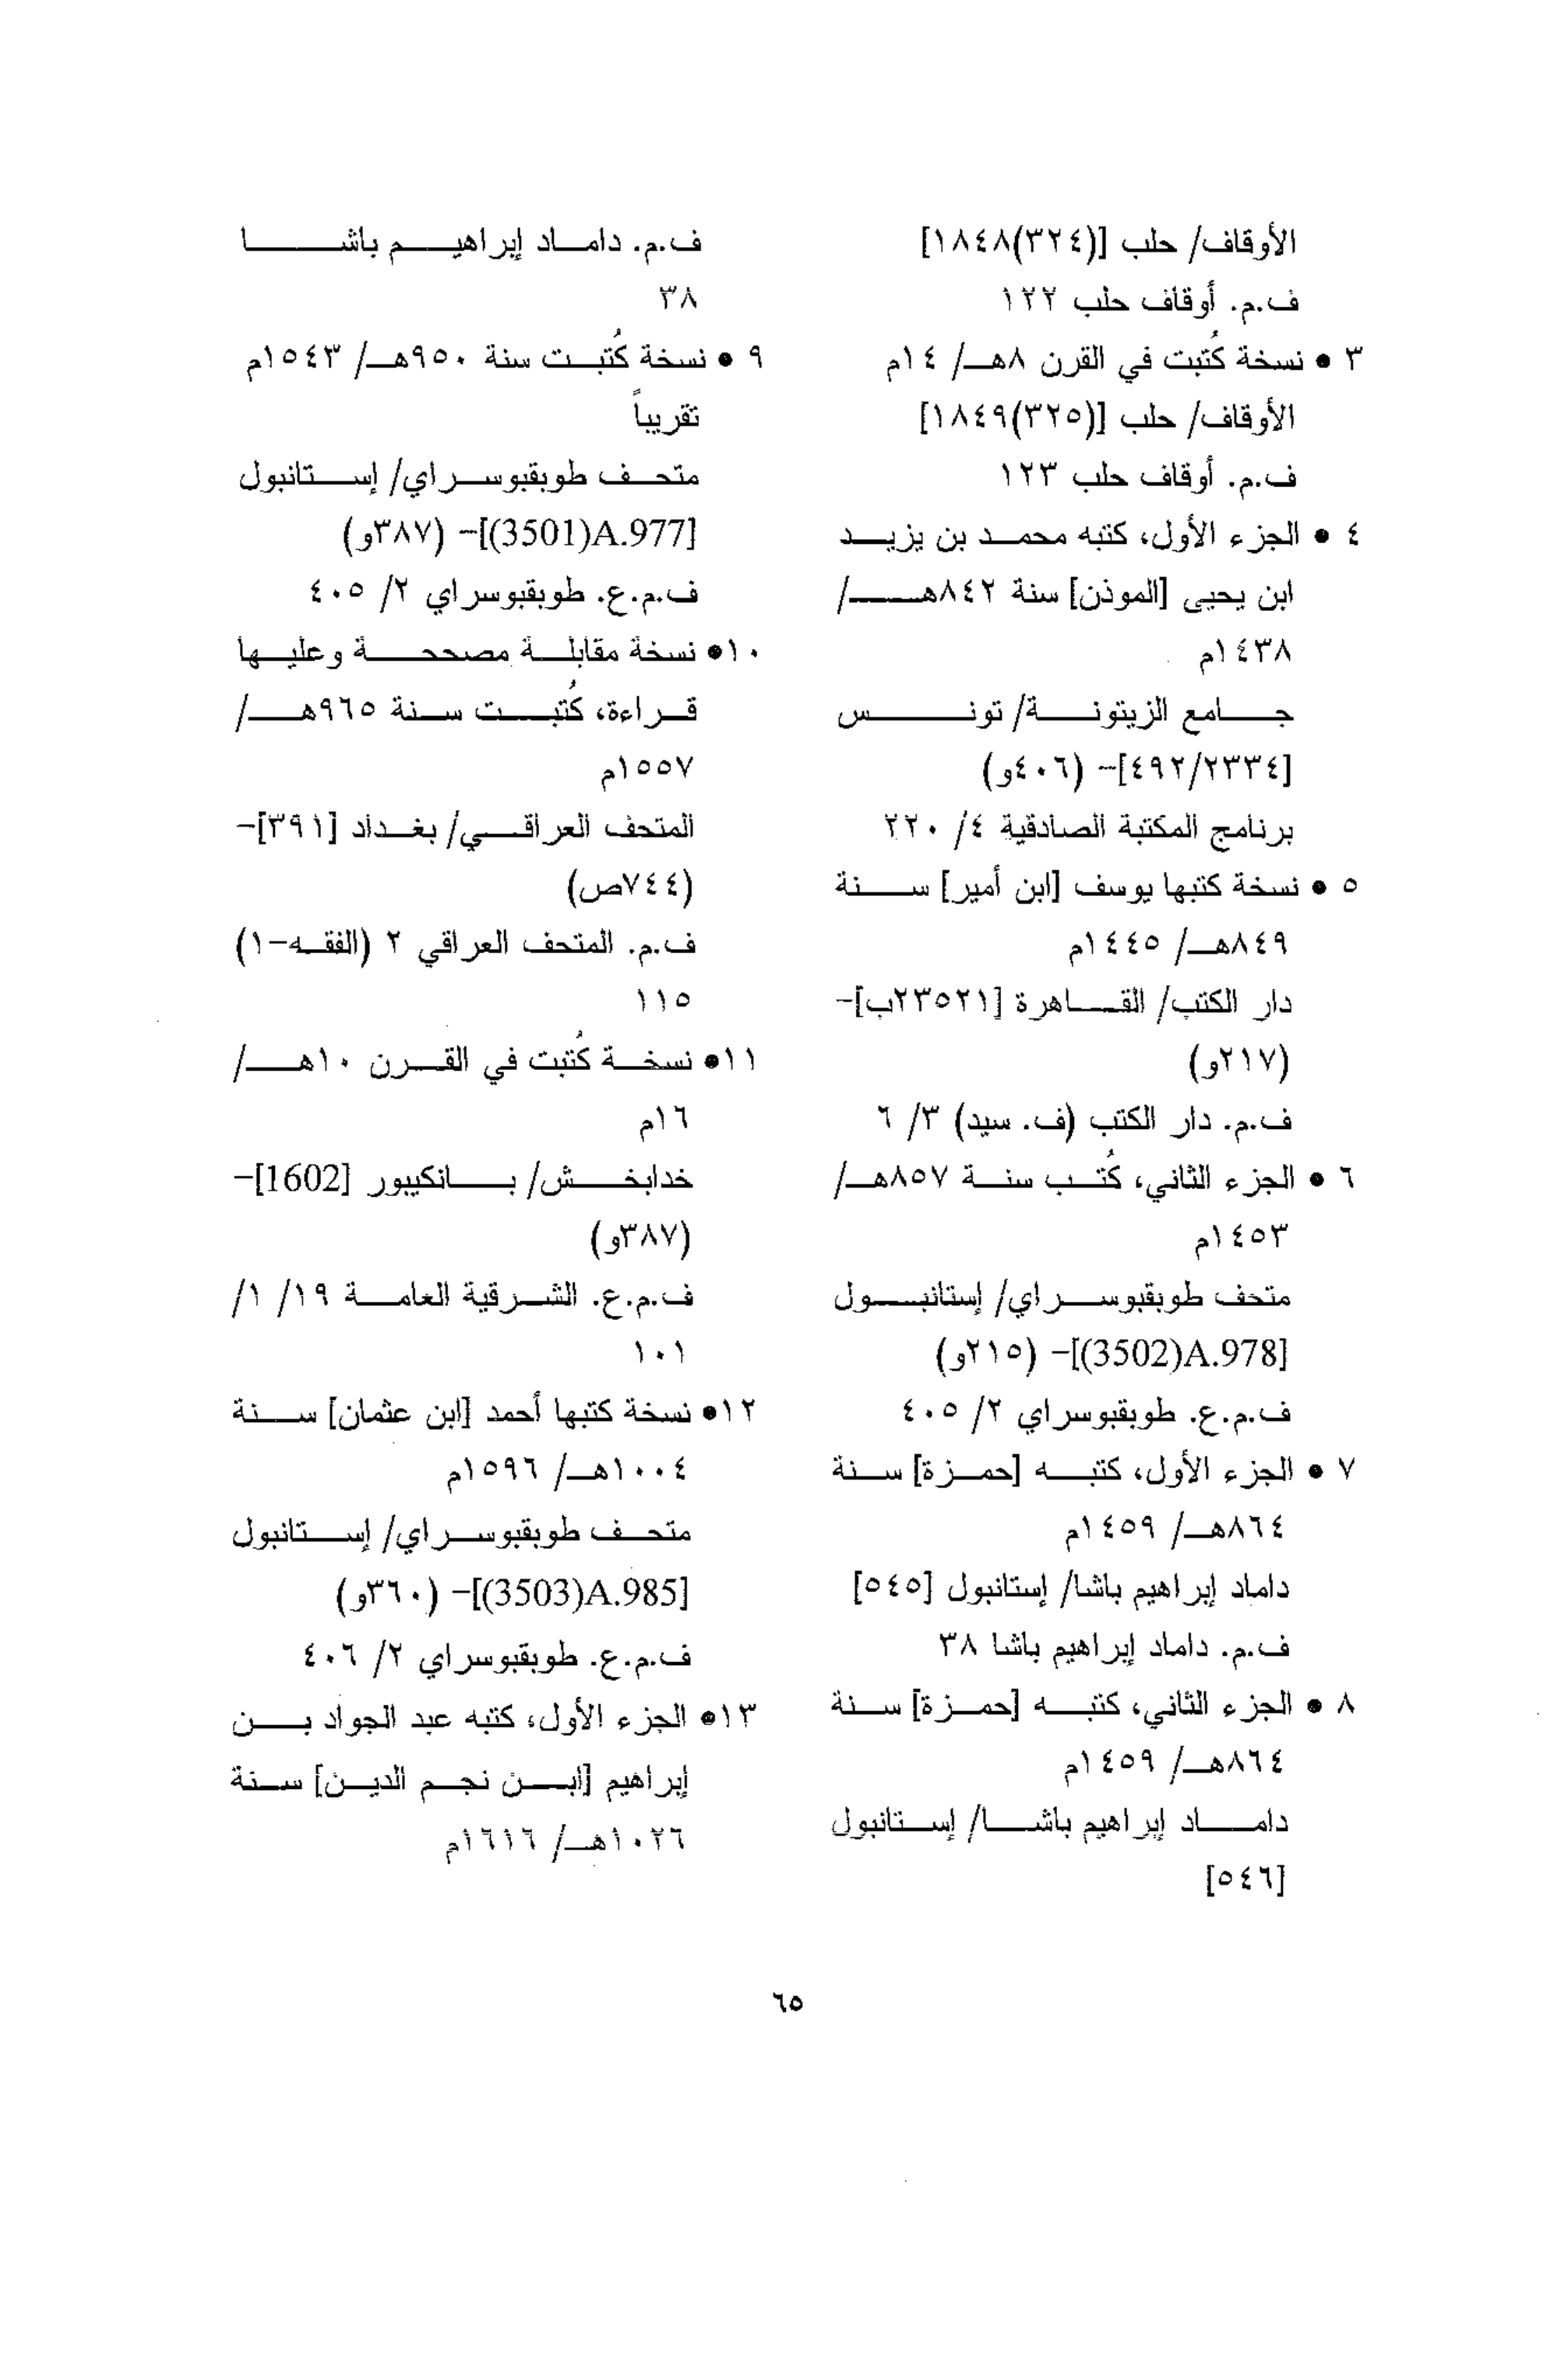 الأوقاف/ حلب [(٣٢٤)١٨٤٨]
ف.م. أوقاف حلب ١٢٢
٣ • نسخة كُتبت في القرن ٨هـ/ ١٤م
الأوقاف/ حلب [(٣٢٥)١٨٤٩]
ف.م. أوقاف حلب ١٢٣
٤ • الجزء الأول، كتبه محمد بن يزيد
ابن يحيى [الموذن] سنة ٨٤٢هـ/
١٤٣٨م
جامع الزيتونة/ تونس
[٤٩٢/٢٣٣٤]- (٤٠٦و)
برنامج المكتبة الصادقية ٤/ ٢٢٠
٥ • نسخة كتبها يوسف [ابن أمير] سنة
٨٤٩هـ/ ١٤٤٥م
دار الكتب/ القاهرة [٢٣٥٢١ب]-
(٢١٧و)
ف.م. دار الكتب (ف. سيد) ٣/ ٦
٦ • الجزء الثاني، كُتب سنة ٨٥٧هـ/
١٤٥٣م
متحف طوبقبوسراي/ إستانبول
[A.978(3502)]- (٢١٥و)
ف.م.ع. طوبقبوسراي ٢/ ٤٠٥
٧ • الجزء الأول، كتبه [حمزة] سنة
٨٦٤هـ/ ١٤٥٩م
داماد إبراهيم باشا/ إستانبول [٥٤٥]
ف.م. داماد إبراهيم باشا ٣٨
٨ • الجزء الثاني، كتبه [حمزة] سنة
٨٦٤هـ/ ١٤٥٩م
داماد إبراهيم باشا/ إستانبول
[٥٤٦]
ف.م. داماد إبراهيم باشا
٣٨
٩ • نسخة كُتبت سنة ٩٥٠هـ/ ١٥٤٣م
تقريباً
متحف طوبقبوسراي/ إستانبول
[A.977(3501)]- (٣٨٧و)
ف.م.ع. طوبقبوسراي ٢/ ٤٠٥
١٠• نسخة مقابلة مصححة وعليها
قراءة، كُتبت سنة ٩٦٥هـ/
١٥٥٧م
المتحف العراقي/ بغداد [٣٩١]-
(٧٤٤ص)
ف.م. المتحف العراقي ٢ (الفقه-١)
١١٥
١١• نسخة كُتبت في القرن ١٠هـ/
١٦م
خدابخش/ بانكيبور [1602]-
(٣٨٧و)
ف.م.ع. الشرقية العامة ١٩/ ١/
١٠١
١٢• نسخة كتبها أحمد [ابن عثمان] سنة
١٠٠٤هـ/ ١٥٩٦م
متحف طوبقبوسراي/ إستانبول
[A.985(3503)]- (٣٦٠و)
ف.م.ع. طوبقبوسراي ٢/ ٤٠٦
١٣• الجزء الأول، كتبه عبد الجواد بن
إبراهيم [ابن نجم الدين] سنة
١٠٢٦هـ/ ١٦١٦م
٦٥